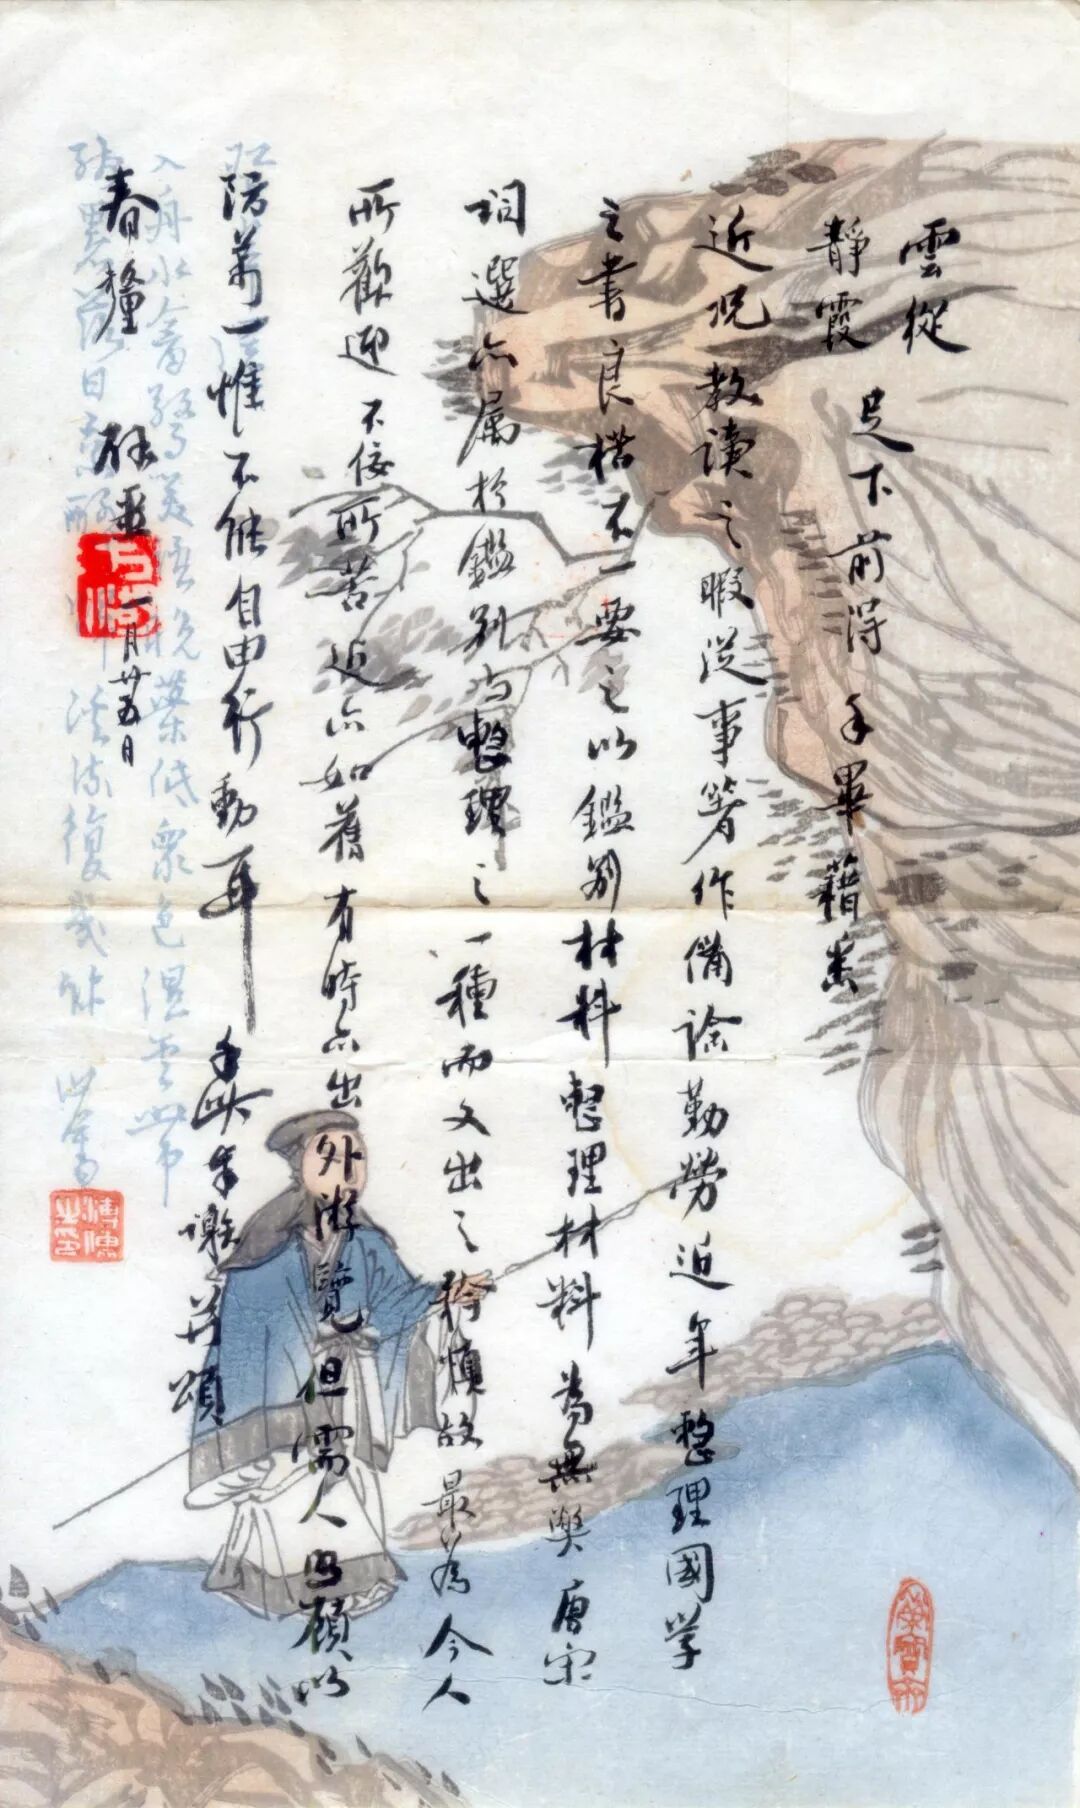 雲從
靜霞 足下前得 手畢藉悉
近況教讀之暇從事著作備諗勤勞近年整理國學
之書良楛不一要之以鑑別材料整理材料為無弊唐宋
詞選亦属於鑑別与整理之一種而文出之矜慎故最為今人
所歡迎不佞所苦近亦如舊有時亦出外游覽但需人照顧以
防萬一惟不能自由行動耳 手此奉謝并頌
春釐
一月廿五日